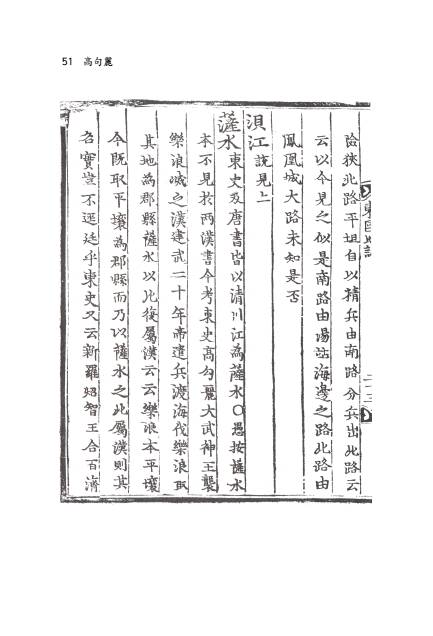 51 高句麗
險狹北路平坦自以精兵由南路分兵出北路云
云以今見之似是南路由湯站海邊之路北路由
鳳凰城大路未知是否
浿江說見上
薩水東史及唐書皆以清川江為薩水○愚按薩水
本不見於兩漢書今考東史高勾麗大武神王襲
樂浪滅之漢建武二十年帝遣兵渡海伐樂浪取
其地為郡縣薩水以北復屬漢云云樂浪本平壤
今既取平壤為郡縣而乃以薩水之北屬漢則其
名實豈不逕廷乎東史又云新羅炤智王合百濟
東國地誌